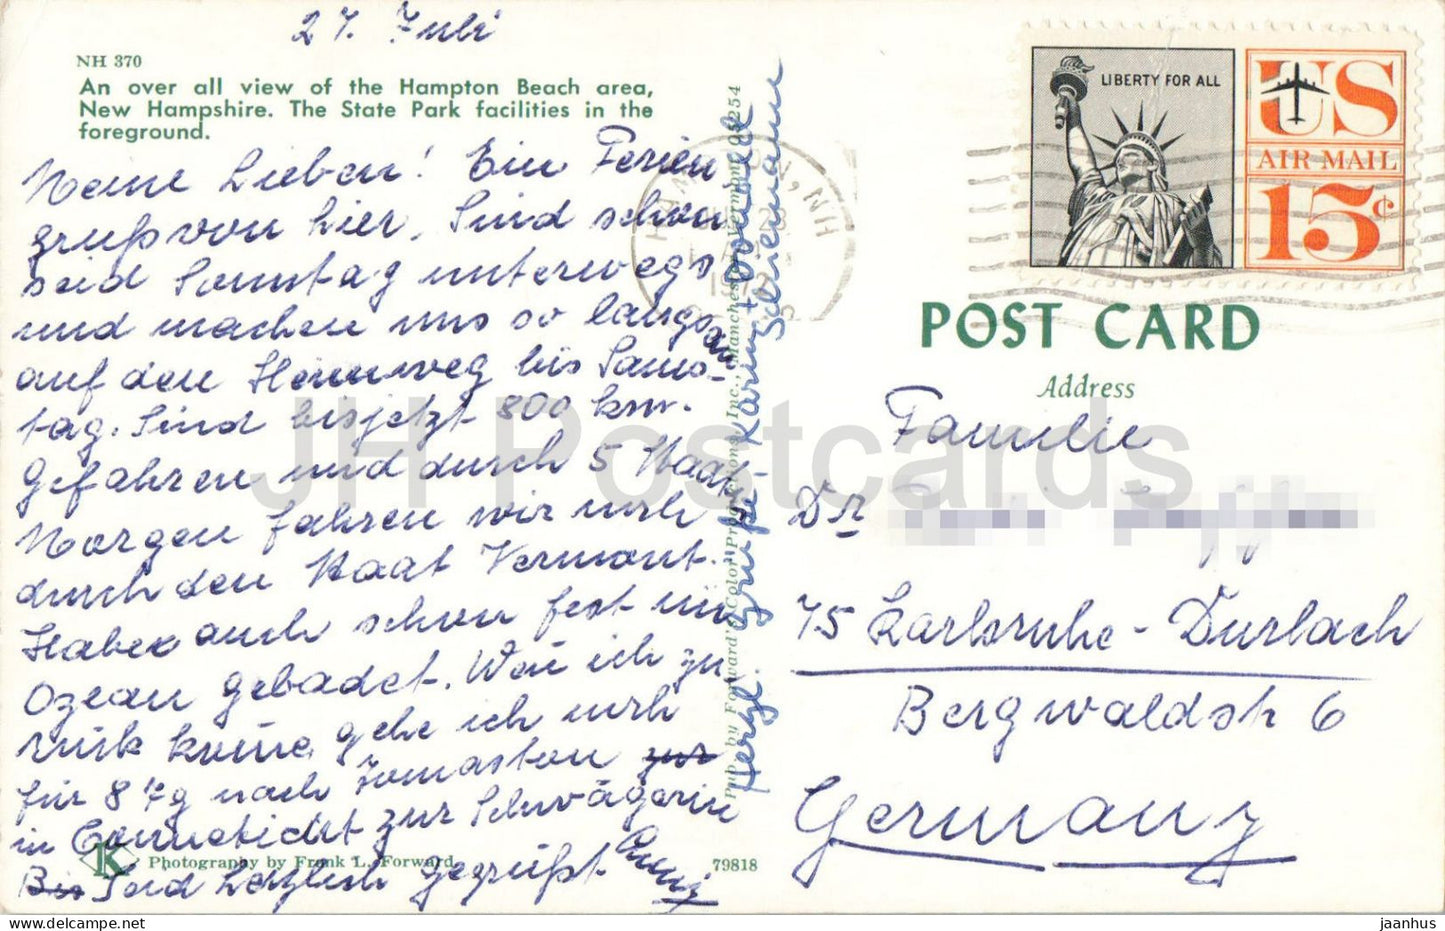 27. Juli
NH 370
An over all view of the Hampton Beach area,
New Hampshire. The State Park facilities in the
foreground.
Meine Lieben! Ein Ferien
gruß von hier. Sind schon
seid Sonntag unterwegs
und machen uns so langsam
auf den Heimweg bis Sams-
tag. Sind bisjetzt 800 km.
Gefahren und durch 5 Staaten
Morgen fahren wir noch
durch den Staat Vermont.
Haben auch schon fest im
Ozean gebadet. Wenn ich zu
rück komme gehe ich noch
für 8 Tg nach Tomaston zur
in Connecticut zur Schwägerin
Bis Seid herzlich gegrüßt
Herzl. Grüße Karin +
Schiemann
Pub. by Forward's Color Productions Inc., Manchester, Vermont 05254
Photography by Frank L. Forward
K
79818
HAMPTON, NH
LIBERTY FOR ALL
US
AIR MAIL
15¢
POST CARD
Address
Familie
Dr
75 Karlsruhe-Durlach
Bergwaldstr 6
Germany
JH Postcards
jaanhus